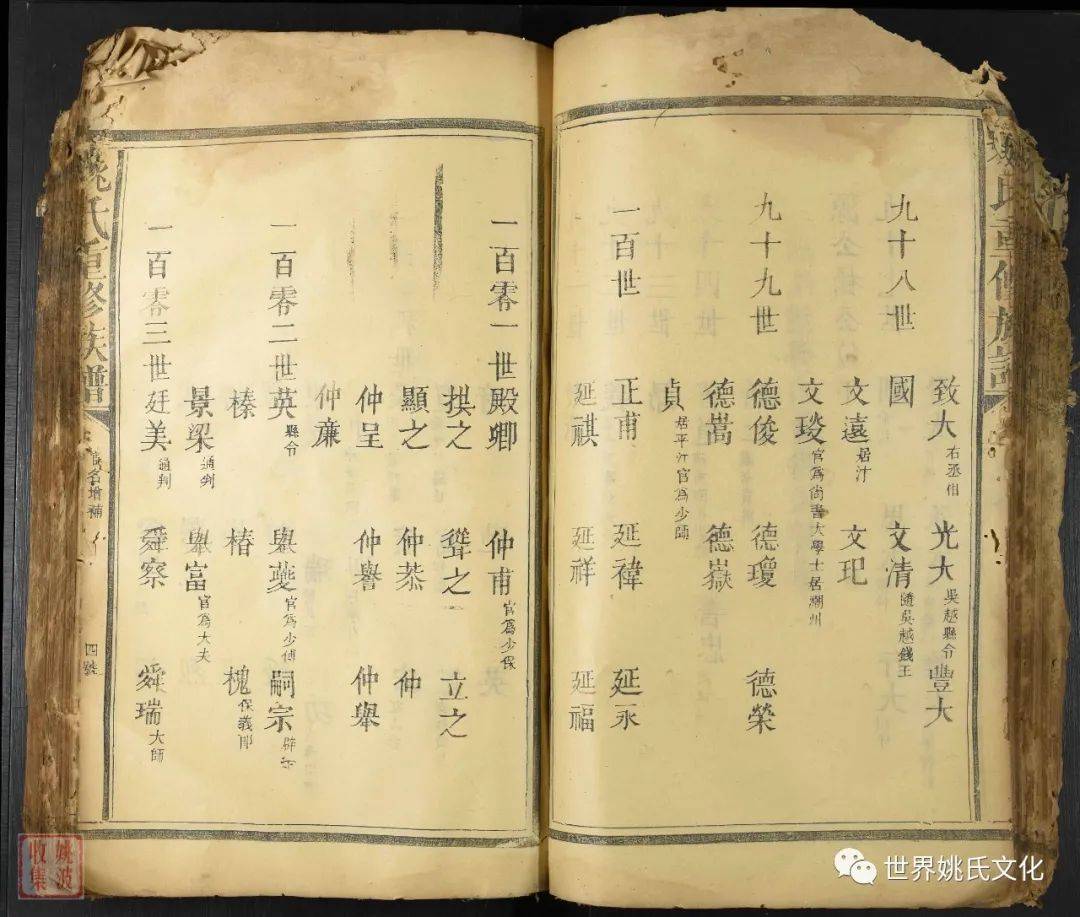 姚氏重修族譜
九十八世
致大 右丞相 光大 吳越縣令 豐大
國 文清 隨吳越錢王
文遠 居汴 文玘
文琰 官為尚書大學士居潮州
九十九世 德俊 德瓊 德榮
德嵩 德嶽
貞 居平江官為少師
一百世 正甫 延禕 延永
延祺 延祥 延福
一百零一世 殿卿 仲甫 官為少保
拱之 聳之 立之
顯之 仲恭 仲
仲呈 仲譽 仲舉
仲廉
一百零二世 英 縣令 舉夔 官為少傅 嗣宗
榛 椿 槐 保義郎
景梁 通判 舉富 官為大夫
一百零三世 廷美 通判 舜察 舜瑞 大師
姚氏重修族譜
名增補
四號
姚波收集
世界姚氏文化